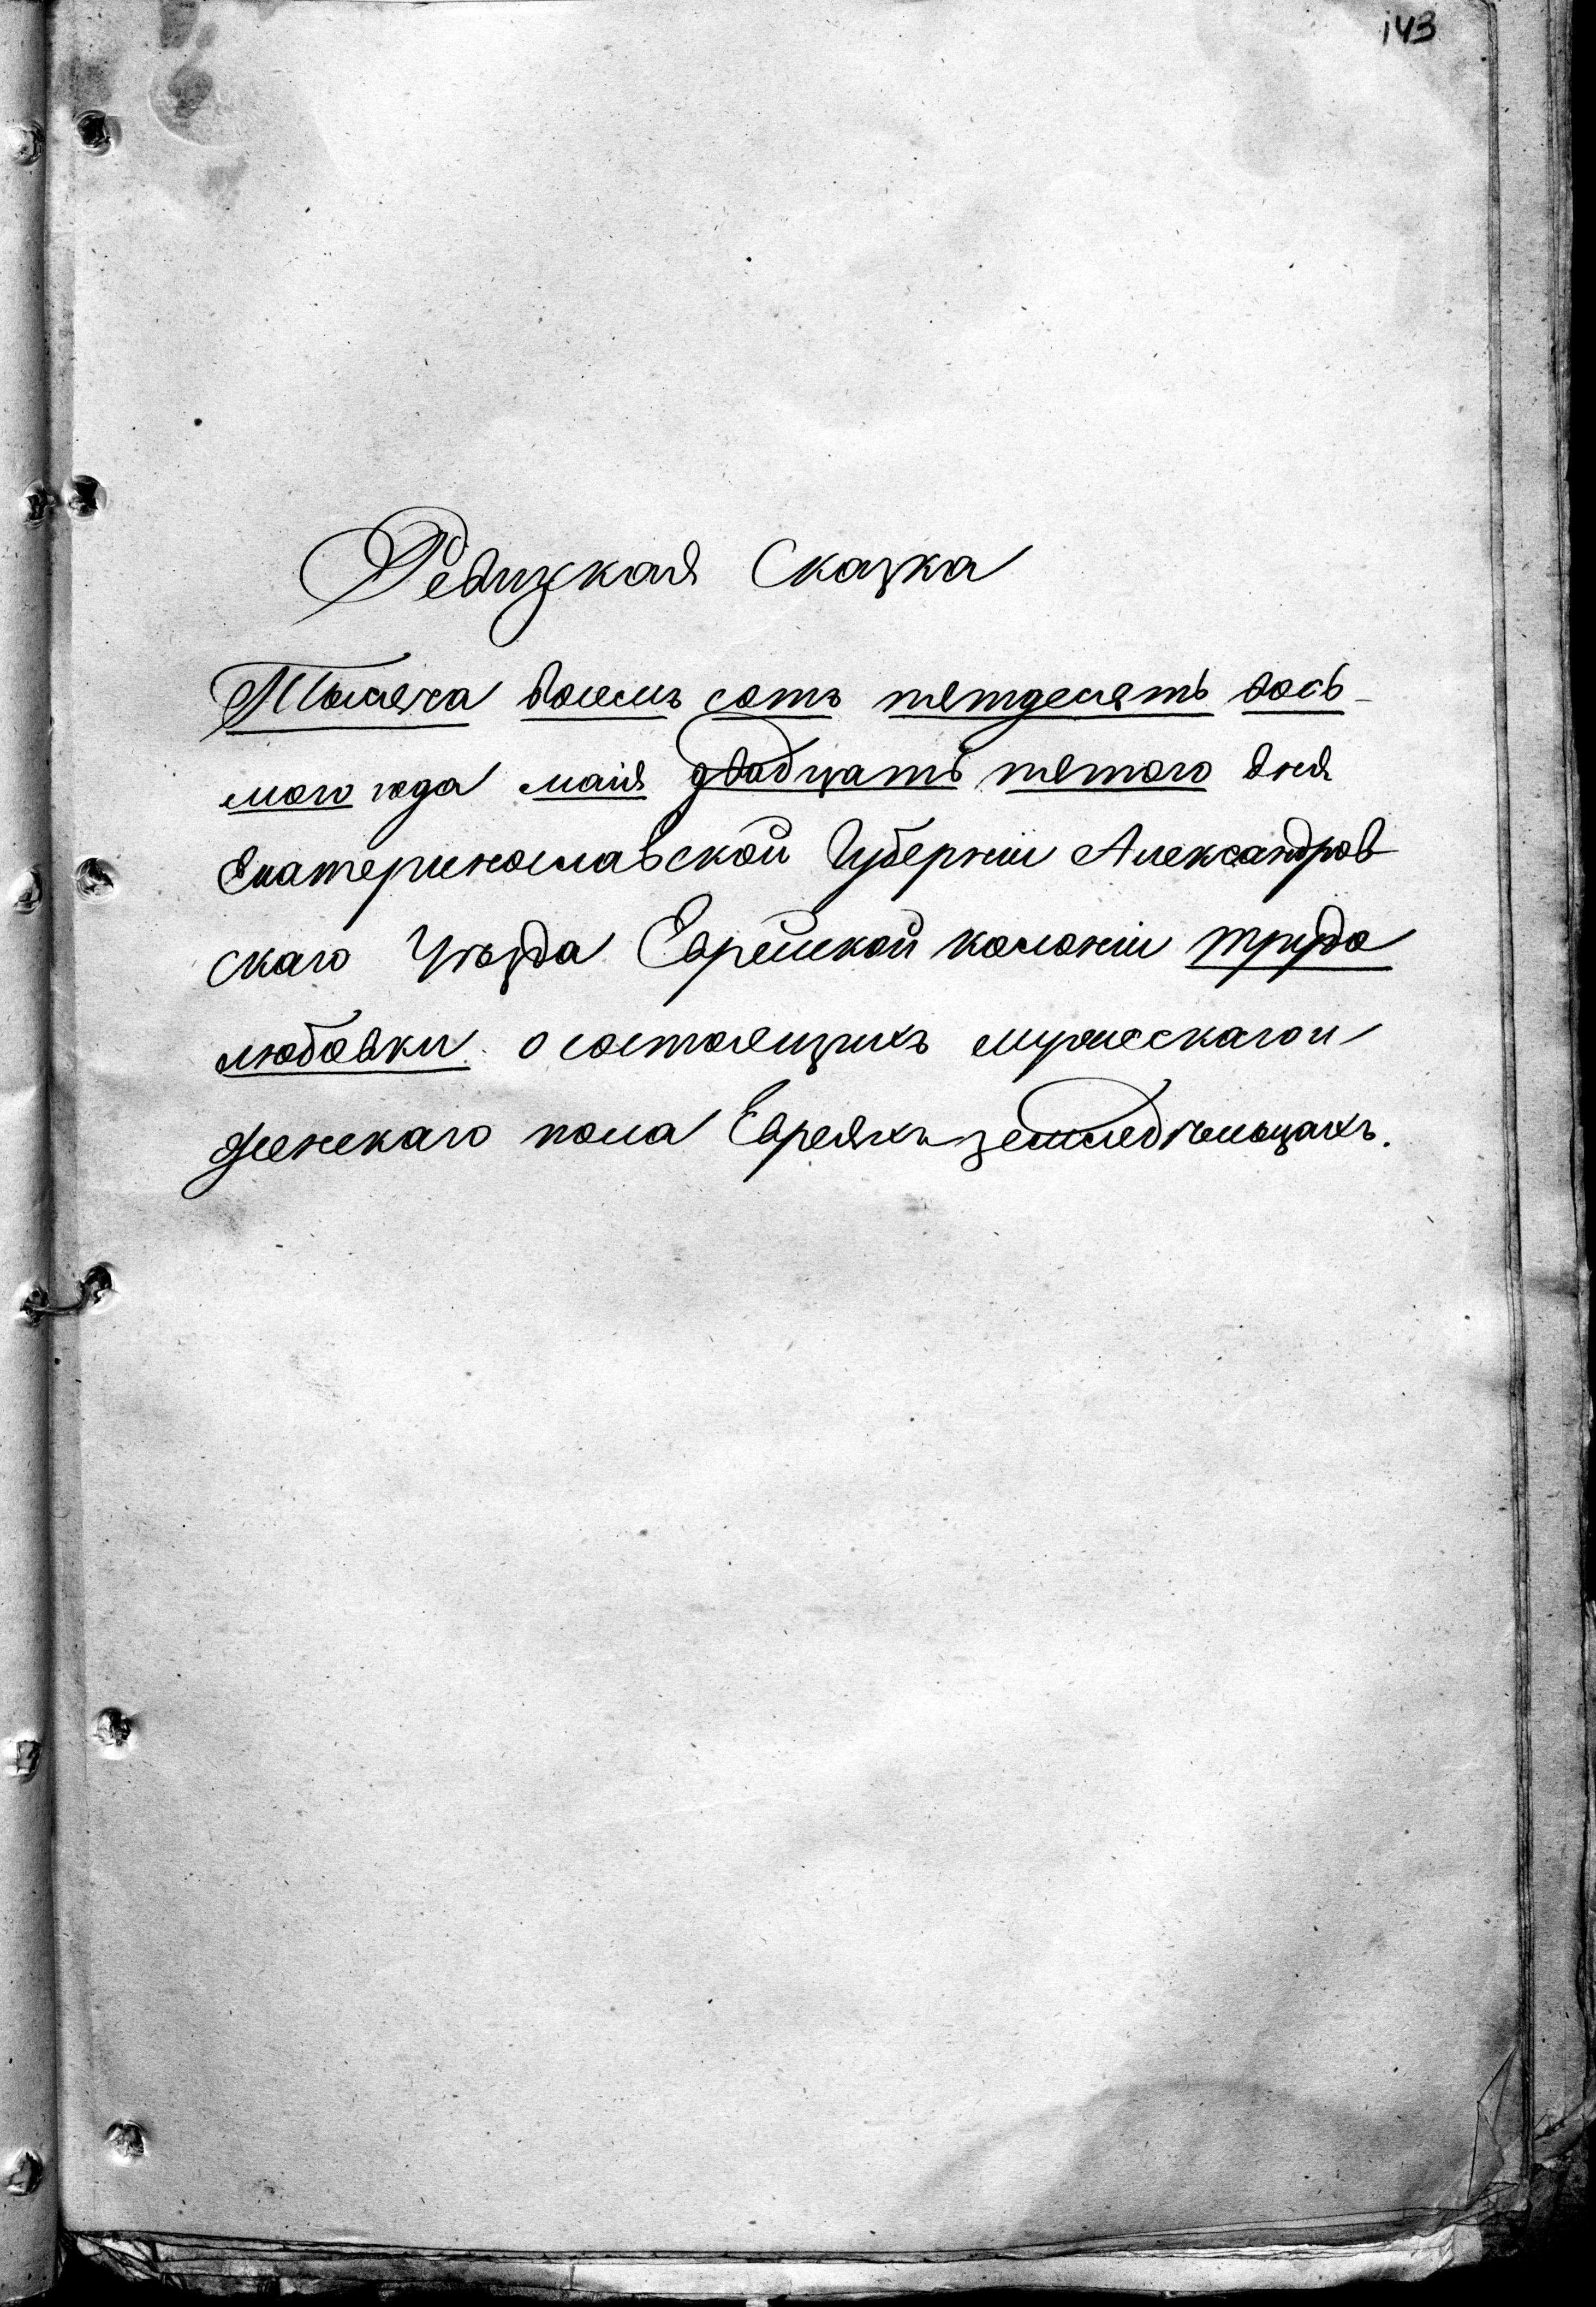 143
Ревизкая Сказка
Тысяча восемъ сотъ пятдесять вось-
мого года маія двадцать пятого дня
Екатеринославской Губерніи Александров
скаго Уѣзда Еврейской колоніи трудо
любовки о состоящихъ мужескаго и
женскаго пола Евреяхъ земледѣльцахъ.